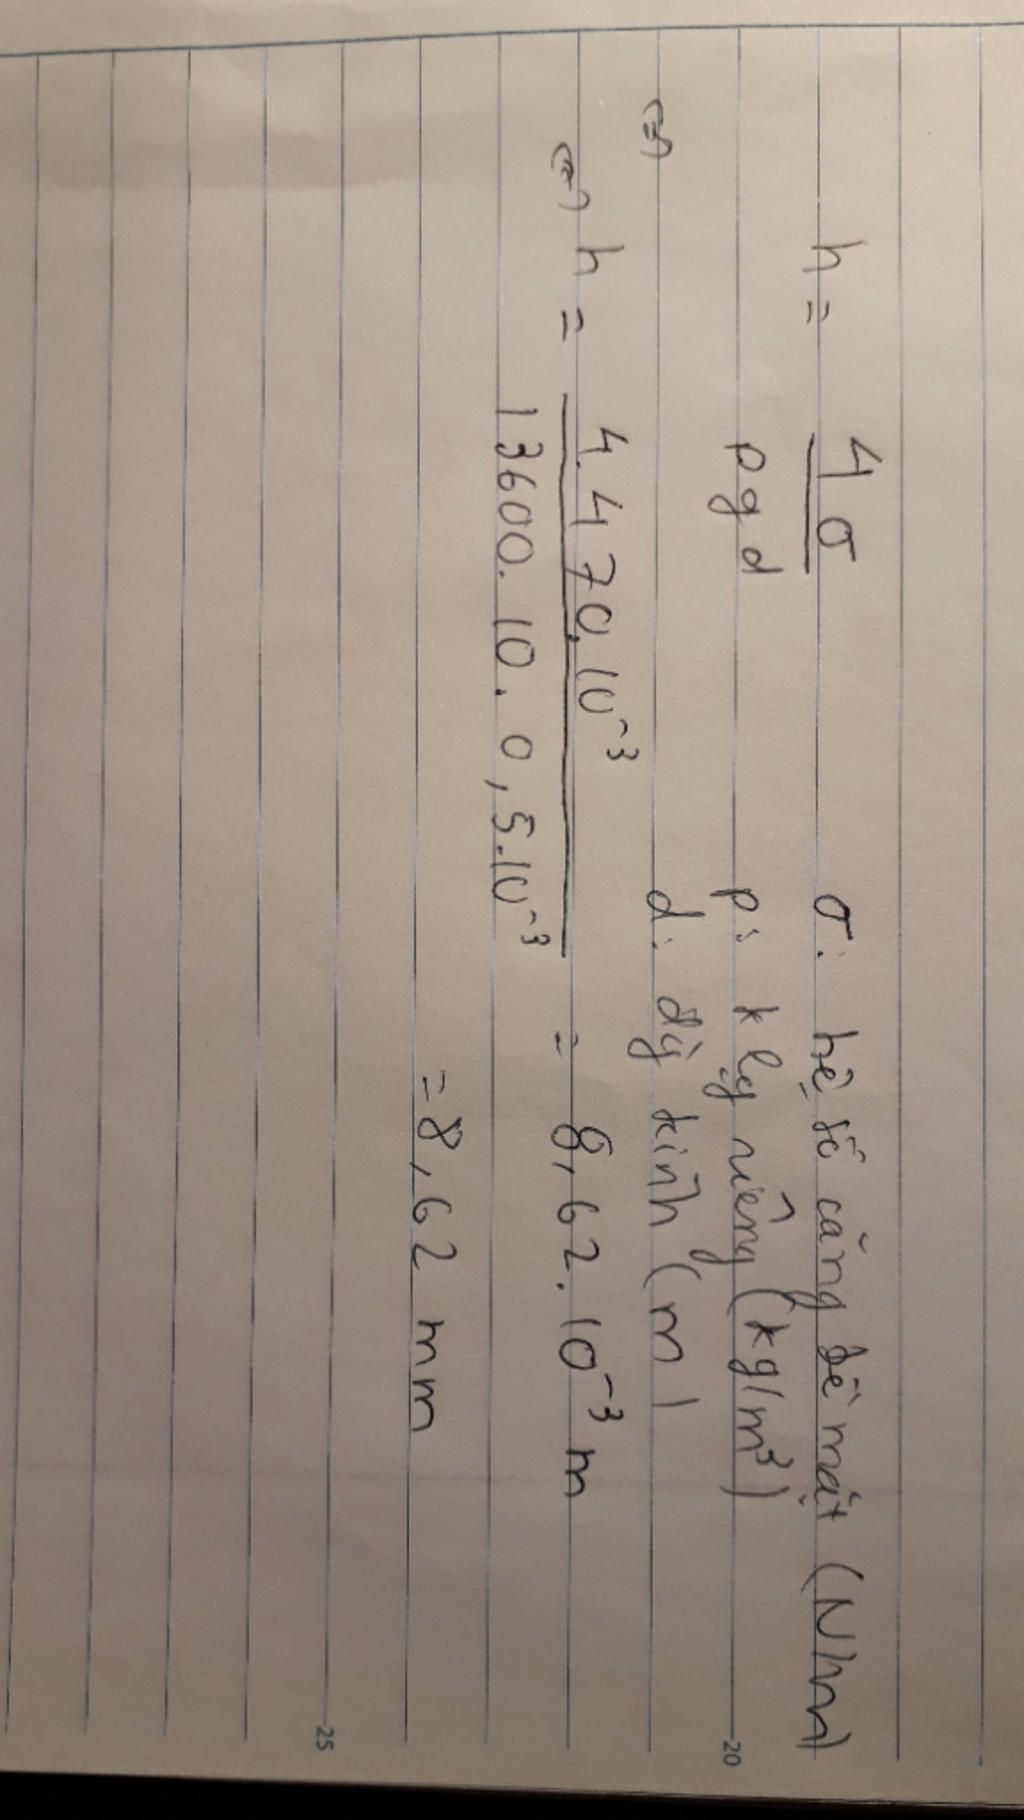 h = 4σ / ρgd σ: hệ số căng bề mặt (N/m)
ρ: k lg riêng (kg/m³)
⇔ d: đg kính (m)
⇔ h = 4.470.10⁻³ / 13600.10.0,5.10⁻³ = 8,62.10⁻³ m
= 8,62 mm
20
25